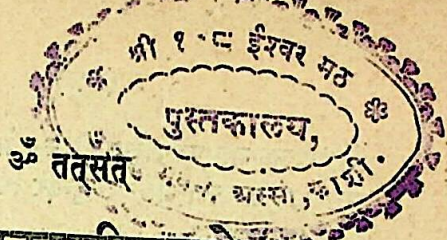 श्री १०८ ईश्वर मठ
पुस्तकालय,
अस्सी, काशी.
ॐ तत्सत्